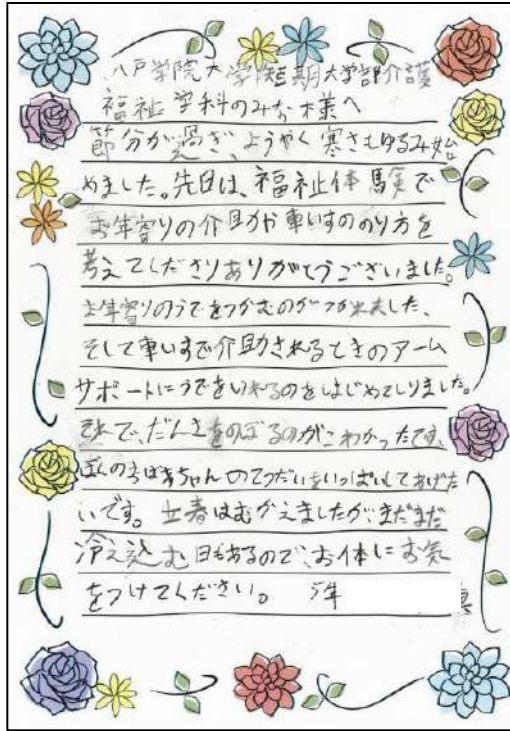 八戸学院大学短期大学部介護
福祉学科のみな様へ
節分が過ぎ、ようやく寒さもゆるみ始
めました。先日は、福祉体験で
お年寄りの介助や車いすののり方を
考えてくださりありがとうございました。
お年寄りのうでをつかむのが
そして車いすで介助されるときのアーム
サポートにうでをいれるのをはじめてしりました。
それで、だんさをのぼるのがこわかったです。
ぼくのおばあちゃんのてつだいをいっぱいしてあげた
いです。立春はむかえましたが、まだまだ
冷え込む日もあるので、お体にお気
をつけてください。 5年